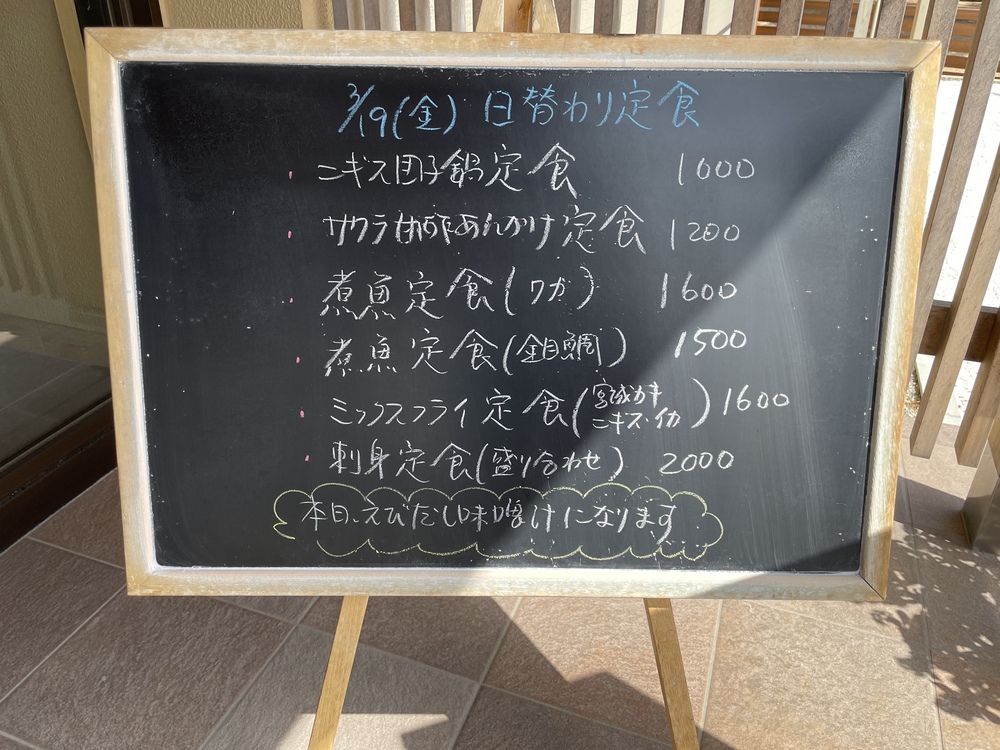 3/19(金) 日替わり定食
・ニギス団子鍋定食 1000
・サワラ甘酢あんかけ定食 1200
・煮魚定食(ワガ) 1600
・煮魚定食(金目鯛) 1500
・ミックスフライ定食(宮城カキ ニギス・イカ) 1600
・刺身定食(盛り合わせ) 2000
本日、えびだし味噌汁になります